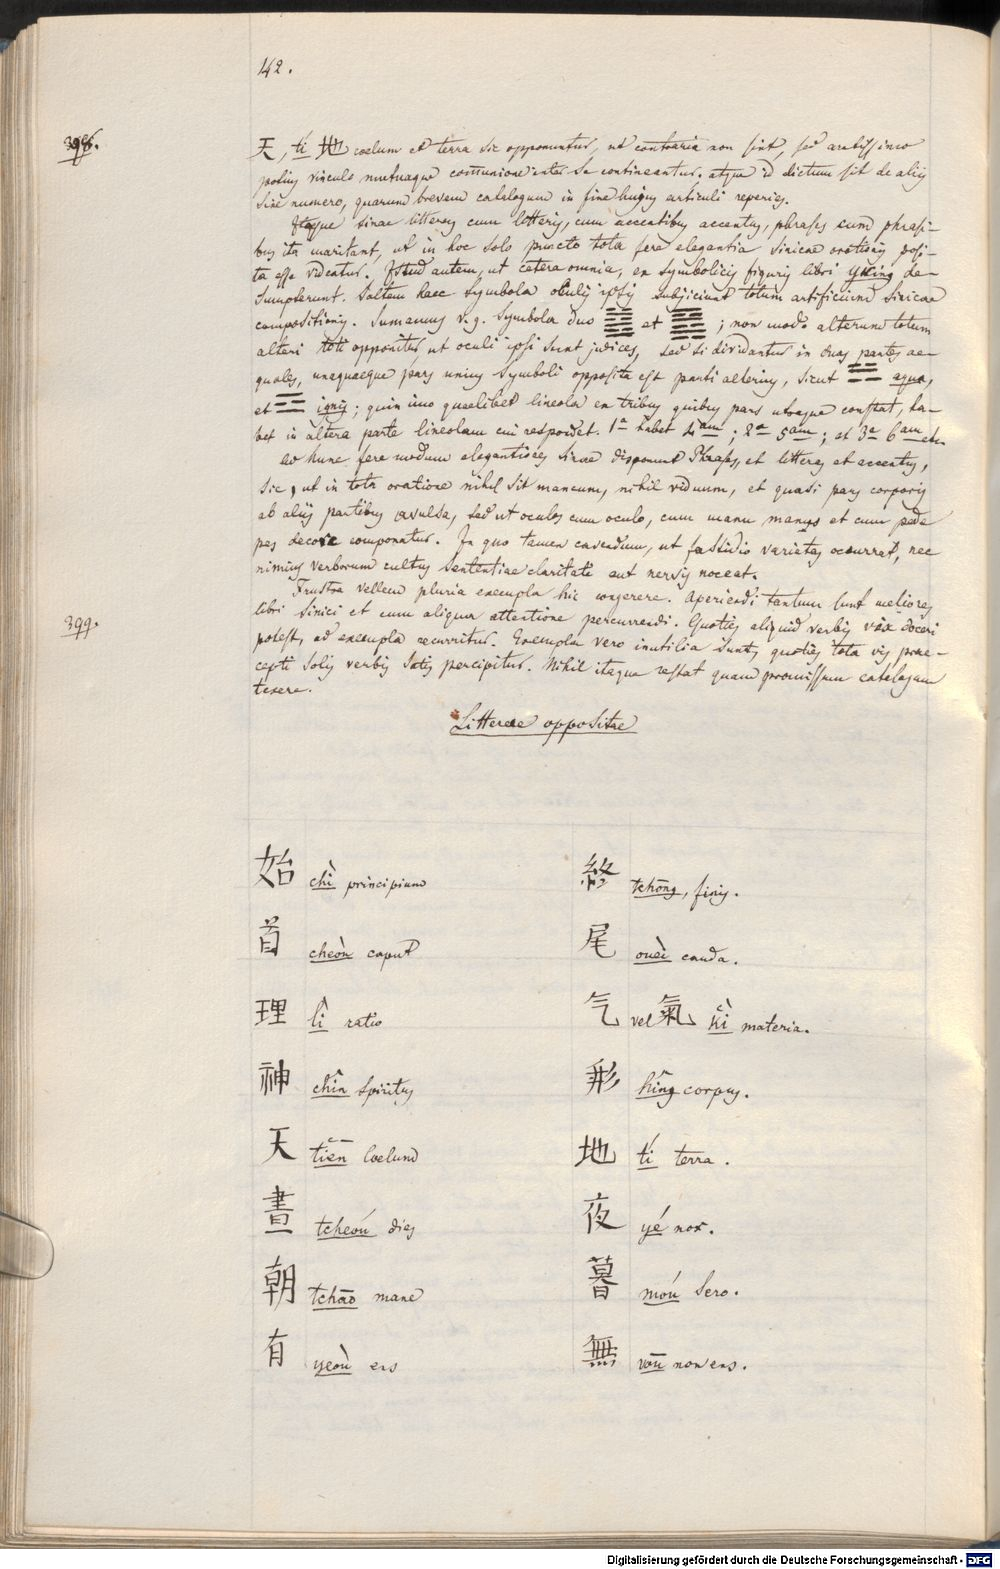 142.
398.
天, tí 地 coelum et terra sic opponuntur, ut contraria non sint, sed arctissimo
potius vinculo mutuaque communione inter se contineantur. atque id dictum sit de aliis
sine numero, quorum brevem catalogum in fine hujus articuli reperies.
Itaque sinae litteras cum litteris, cum accentibus accentus, phrases cum phrasi-
bus ita maritant, ut in hoc solo puncto tota fere elegantia sinicae orationis posi-
ta esse videatur. Istud autem, ut cetera omnia, ex symbolicis figuris libri yking de-
sumpserunt. Saltem haec symbola oculis ipsis subjiciunt totum artificium sinicae
compositionis. Sumamus v. g. symbola duo et ; non modo alterum totum
alteri toti opponitur ut oculi ipsi sunt judices, sed si dividantur in duas partes ae-
quales, unaquaeque pars unius symboli opposita est parti alterius, sicut ☵ aqua,
et ☲ ignis; quin imo quaelibet lineola ex tribus quibus pars utraque constat, ha-
bet in altera parte lineolam cui respondet. 1ª habet 4am; 2ª 5am; et 3ª 6am etc.
ad hunc fere modum elegantiores sinae disponunt Phrases, et litteras et accentus,
sic, ut in tota oratione nihil sit mancum, nihil viduum, et quasi pars corporis
ab aliis partibus avulsa, sed ut oculus cum oculo, cum manu manus et cum pede
pes decore componatur. In quo tamen cavendum, ut fastidio varietas occurrat, nec
nimius verborum cultus sententiae claritati aut nervis noceat.
399.
Frustra vellem pluria exempla hic congerere. Aperiendi tantum sunt meliores
libri sinici et cum aliqua attentione percurrendi. Quoties aliquid verbis vix doceri
potest, ad exempla recurritur. Exempla vero inutilia sunt, quoties tota vis prae-
cepti solis verbis satis percipitur. Nihil itaque restat quam promissum catalogum
texere.
Litterae oppositae
始 chì principium 終 tchōng, finis.
首 cheòu caput 尾 ouèi cauda.
理 lì ratio 气 vel 氣 kí materia.
神 chîn spiritus 形 hîng corpus.
天 tiēn coelum 地 tí terra.
晝 tcheóu dies 夜 yé nox.
朝 tchāo mane 暮 móu sero.
有 yeoù ens 無 voū non ens.
Digitalisierung gefördert durch die Deutsche Forschungsgemeinschaft - DFG